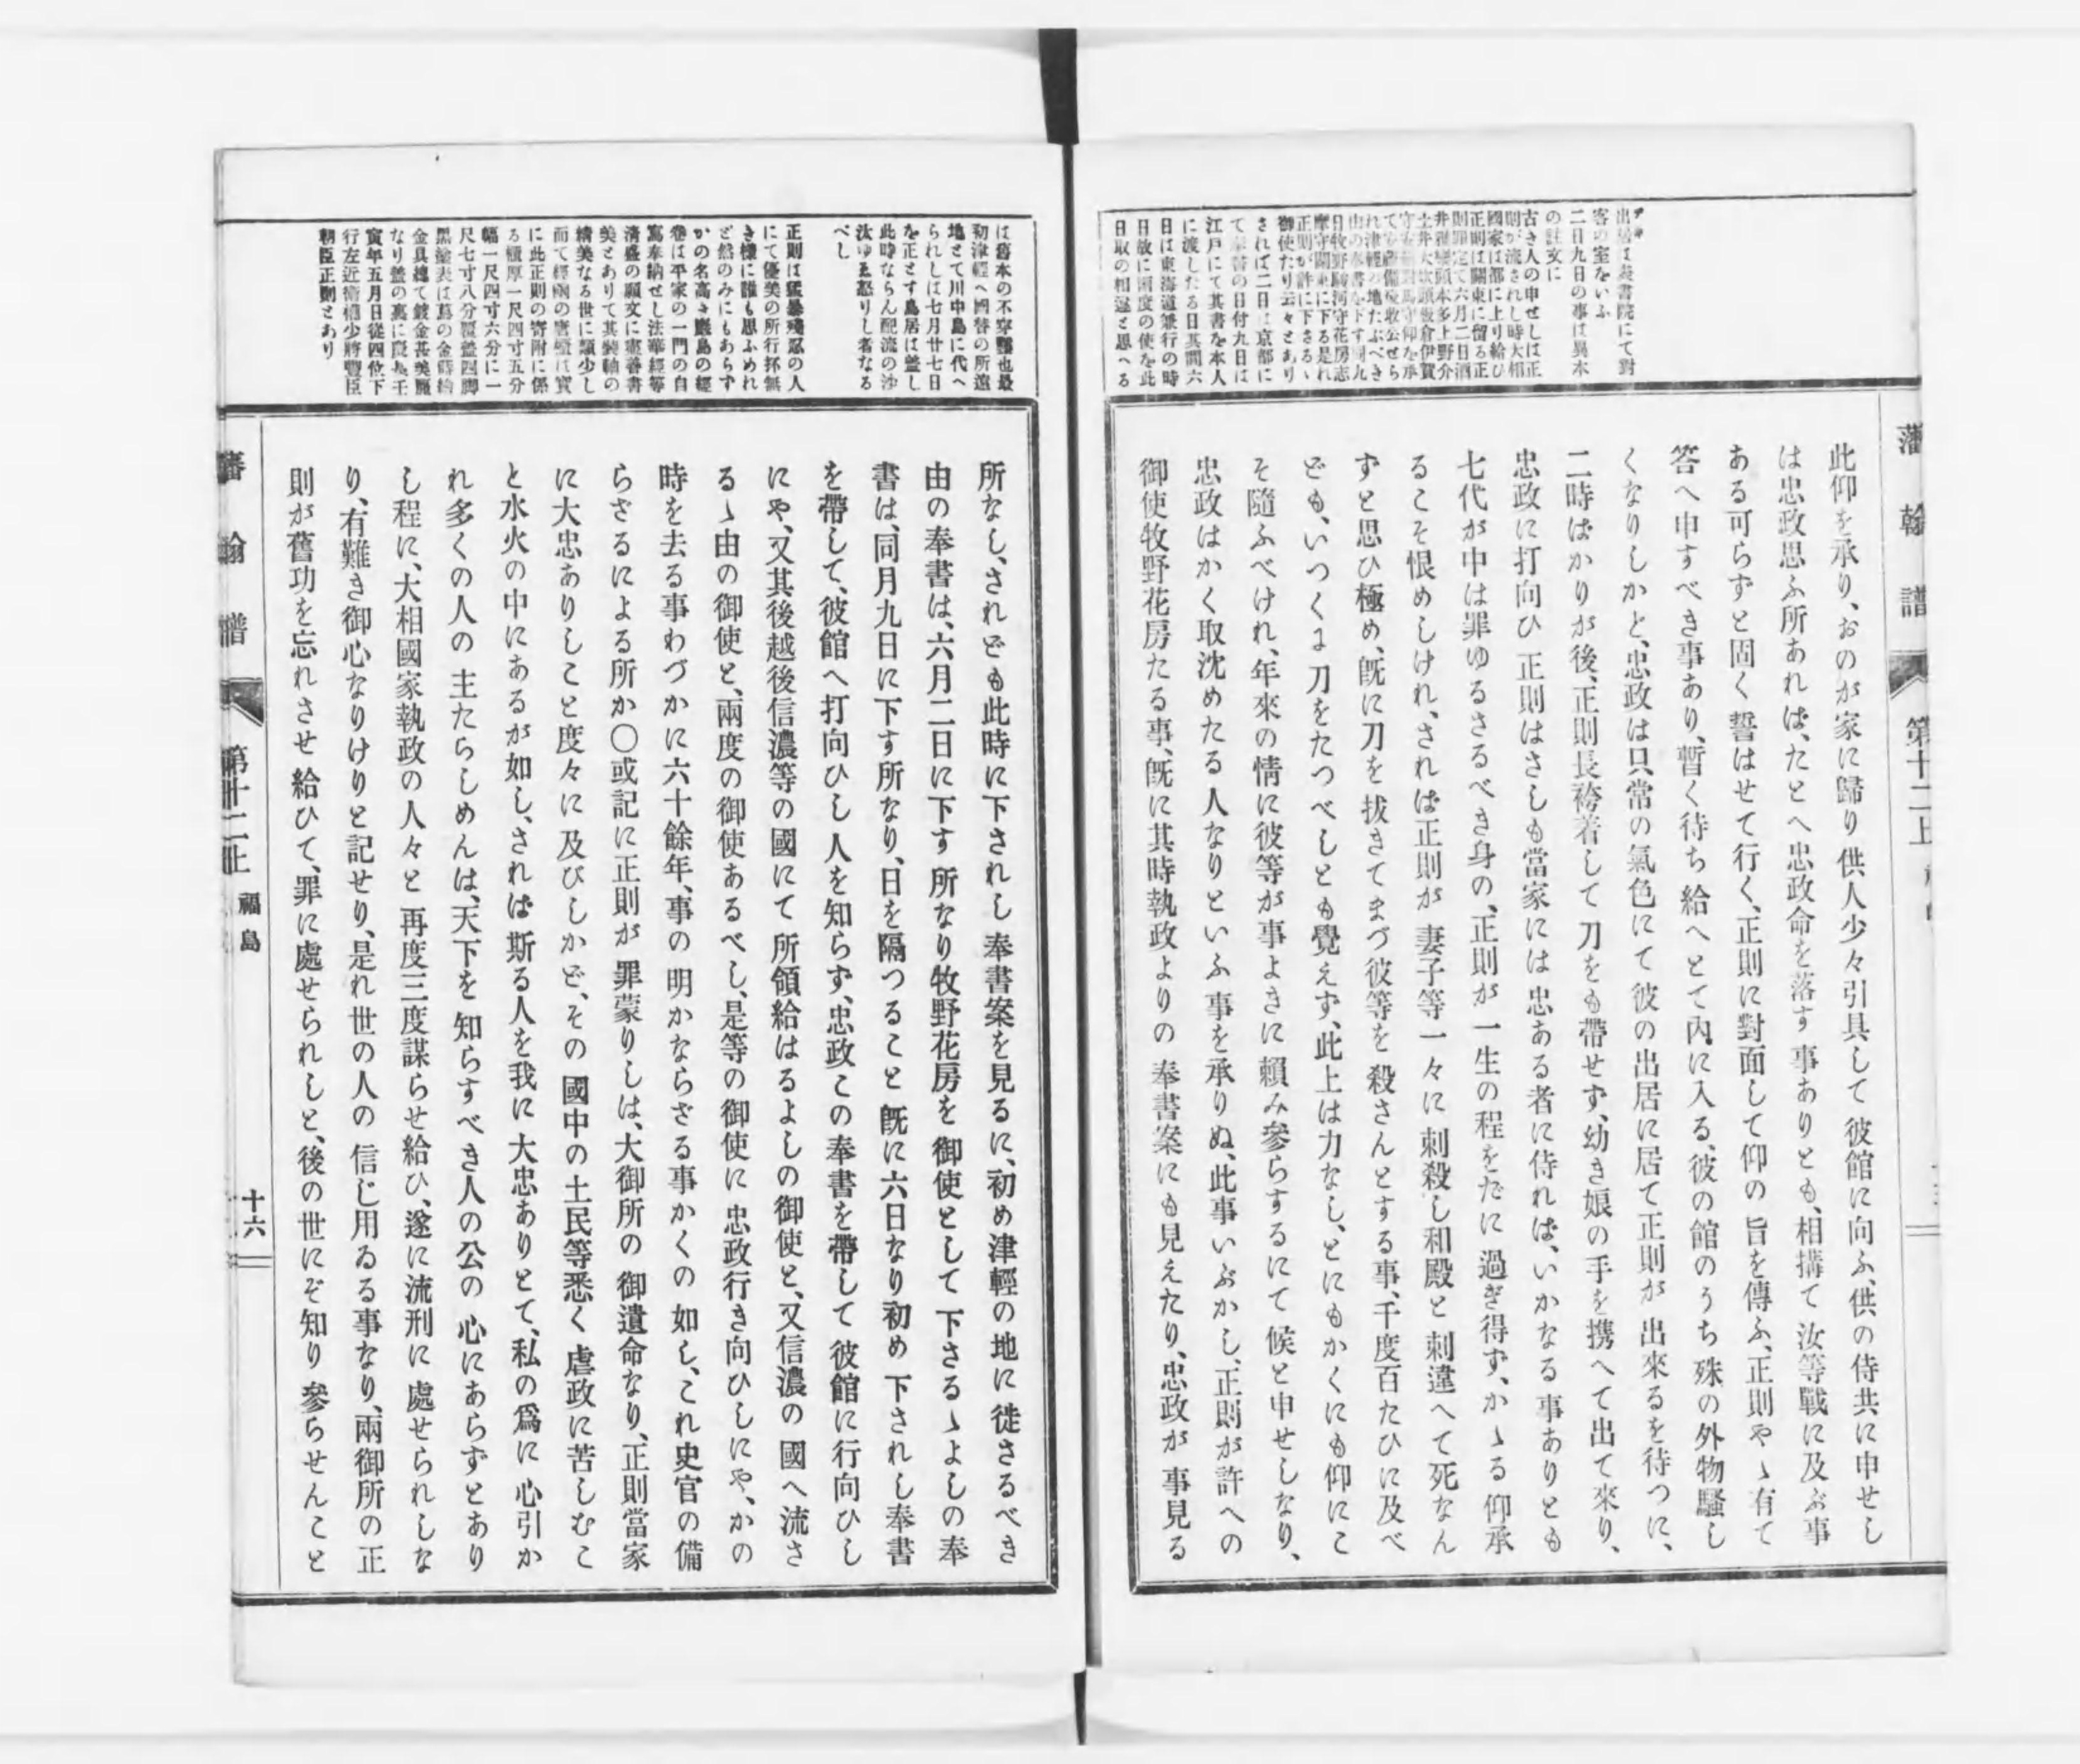 藩翰譜 第十二上
出居は表書院にて對
客の室をいふ
二日九日の事は異本
の註文に
古き人の申せしは正
則が流されし時大相
國家は都に上り給ひ
正則は關東に留る正
則罪定て六月二日酒
井雅樂頭本多上野介
土井大炊頭板倉伊賀
守安藤對馬守仰を承
て安藝備後收公せら
れ津輕の地たぶべき
由の奉書を下す同九
日牧野駿河守花房志
摩守關東に下る是れ
正則が許に下さるゝ
御使たり云々とあり
されば二日は京都に
て奉書の日付九日は
江戸にて其書を本人
に渡したる日其間六
日は東海道兼行の時
日故に兩度の使を此
日取の相違と思へる
此仰を承り、おのが家に歸り供人少々引具して彼館に向ふ、供の侍共に申せし
は忠政思ふ所あれば、たとへ忠政命を落す事ありとも、相搆て汝等戰に及ぶ事
ある可らずと固く誓はせて行く、正則に對面して仰の旨を傳ふ、正則やゝ有て
答へ申すべき事あり、暫く待ち給へとて內に入る、彼の館のうち殊の外物騷し
くなりしかと、忠政は只常の氣色にて彼の出居に居て正則が出來るを待つに、
二時ばかりが後、正則長袴着して刀をも帶せず、幼き娘の手を携へて出て來り、
忠政に打向ひ正則はさしも當家には忠ある者に侍れば、いかなる事ありとも
七代が中は罪ゆるさるべき身の、正則が一生の程をだに過ぎ得ず、かゝる仰承
るこそ恨めしけれ、されば正則が妻子等一々に刺殺し和殿と刺違へて死なん
ずと思ひ極め、既に刀を拔きてまづ彼等を殺さんとする事、千度百たひに及べ
ども、いつくに刀をたつべしとも覺えず、此上は力なし、とにもかくにも仰にこ
そ隨ふべけれ、年來の情に彼等が事よきに賴み參らするにて候と申せしなり、
忠政はかく取沈めたる人なりといふ事を承りぬ、此事いぶかし、正則が許への
御使牧野花房たる事、既に其時執政よりの奉書案にも見えたり、忠政が事見る
は舊本の不穿鑿也最
初津輕へ國替の所遠
地とて川中島に代へ
られしは七月廿七日
を正とす鳥居は蓋し
此時ならん配流の沙
汰ゆゑ怒りし者なる
べし
正則は猛暴殘忍の人
にて優美の所行抔無
き樣に誰も思ふめれ
ど然のみにもあらず
かの名高き嚴島の經
卷は平家の一門の自
寫奉納せし法華經等
清盛の願文に盡善書
美とありて其裝軸の
精美なる世に類少し
而て經凾の唐櫃は實
に此正則の寄附に係
る櫃厚一尺四寸五分
幅一尺四寸六分に一
尺七寸八分覆蓋四脚
黑塗表は蔦の金蒔繪
金具總て鍍金甚美麗
なり蓋の裏に慶長壬
寅年五月日從四位下
行左近衛權少將豐臣
朝臣正則とあり
所なし、されども此時に下されし奉書案を見るに、初め津輕の地に徙さるべき
由の奉書は、六月二日に下す所なり牧野花房を御使として下さるゝよしの奉
書は、同月九日に下す所なり、日を隔つること既に六日なり初め下されし奉書
を帶して、彼館へ打向ひし人を知らず、忠政この奉書を帶して彼館に行向ひし
にや、又其後越後信濃等の國にて所領給はるよしの御使と、又信濃の國へ流さ
るゝ由の御使と、兩度の御使あるべし、是等の御使に忠政行き向ひしにや、かの
時を去る事わづかに六十餘年、事の明かならざる事かくの如し、これ史官の備
らざるによる所か〇或記に正則が罪蒙りしは、大御所の御遺命なり、正則當家
に大忠ありしこと度々に及びしかど、その國中の土民等悉く虐政に苦しむこ
と水火の中にあるが如し、されば斯る人を我に大忠ありとて、私の爲に心引か
れ多くの人の主たらしめんは、天下を知らすべき人の公の心にあらずとあり
し程に、大相國家執政の人々と再度三度謀らせ給ひ、遂に流刑に處せられしな
り、有難き御心なりけりと記せり、是れ世の人の信じ用ゐる事なり、兩御所の正
則が舊功を忘れさせ給ひて、罪に處せられしと、後の世にぞ知り參らせんこと
藩翰譜 第十二上 福島 十六